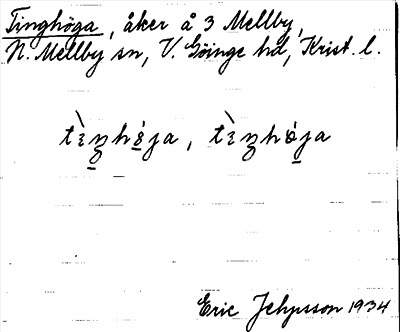 Tinghöga, åker å 3 Mellby,
N. Mellby sn, V. Göinge hd, Krist. l.
tɛ̀ŋhǿja, tɛ̀ŋhǿja
Eric Jepsson 1934